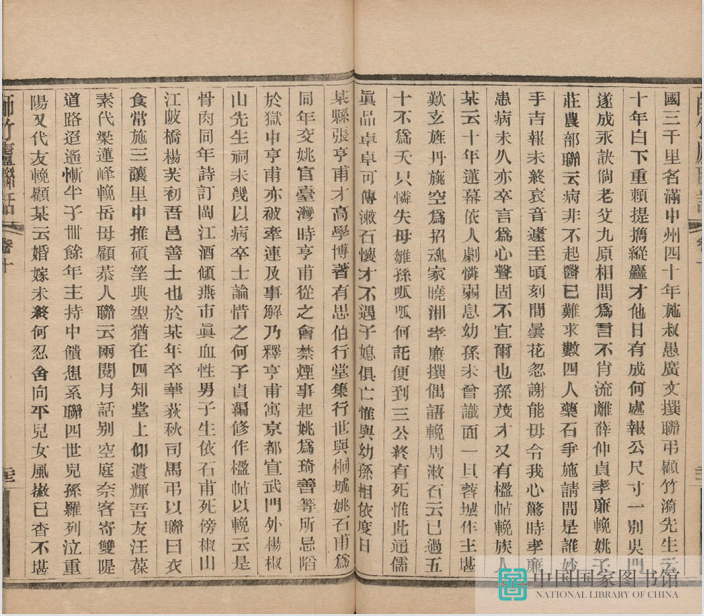 國三千里名滿中州四十年施叔愚廣文撰聯弔顧竹漪先生云
十年白下重賴提攜縱龕才他日有成何處報公尺寸一別吳門
遂成永訣倘老父九原相問爲吾不肖流離薛仲貞孝廉輓姚子
莊農部聯云病非不起醫已難求數四人藥石爭施請問是誰妙
手吉報未終哀音遽至頃刻間曇花忽謝能毋令我心驚時孝廉
患病未久亦卒言爲心聲固不宜爾也孫茂才又有楹帖輓族人
某云十年蓮幕依人劇憐弱息幼孫未曾識面一旦蓉城作主堪
歎玄旌丹旐空爲招魂家曉湘孝廉撰偶語輓周漱石云已過五
十不爲夭只憐失母雛孫呱呱何託便到三公終有死惟此通儒
眞品卓卓可傳漱石懷才不遇子媳俱亡惟與幼孫相依度日
某縣張亨甫才高學博著有思伯行堂集行世與桐城姚石甫爲
同年交姚官臺灣時亨甫從之會禁煙事起姚爲琦善等所忌陷
於獄中亨甫亦被牽連及事解乃釋亨甫寓京都宣武門外楊椒
山先生祠未幾以病卒士論惜之何子貞編修作楹帖以輓云是
骨肉同年詩訂閩江酒傾燕市眞血性男子生依石甫死傍椒山
江陂橋楊芙初吾邑善士也於某年卒華荻秋司馬弔以聯曰衣
食常施三讓里中推碩望典型猶在四知堂上仰遺輝吾友汪葆
素代梁蓮峰輓岳母顧恭人聯云兩閱月話别空庭奈客寄雙隄
道路迢遙慚半子卌餘年主持中饋想系聯四世兒孫羅列泣重
陽又代友輓顧某云婚嫁未終何忍舍向平兒女風徽已杳不堪
師竹廬聯話
卷十
中国国家图书馆
NATIONAL LIBRARY OF CHINA